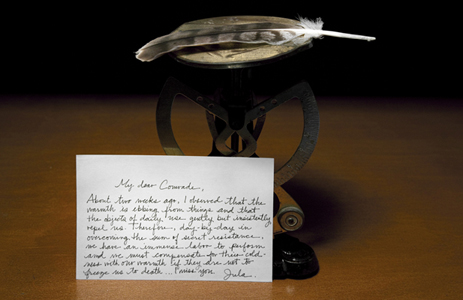 My dear Comrade,
About two weeks ago, I observed that the
warmth is ebbing from things and that
the objects of daily use gently but insistently
repel us. Therefore, day by day in
overcoming the sum of secret resistance,
we have an immense labor to perform
and we must compensate for their cold-
ness with our warmth if they are not to
freeze us to death... I miss you. Jula.